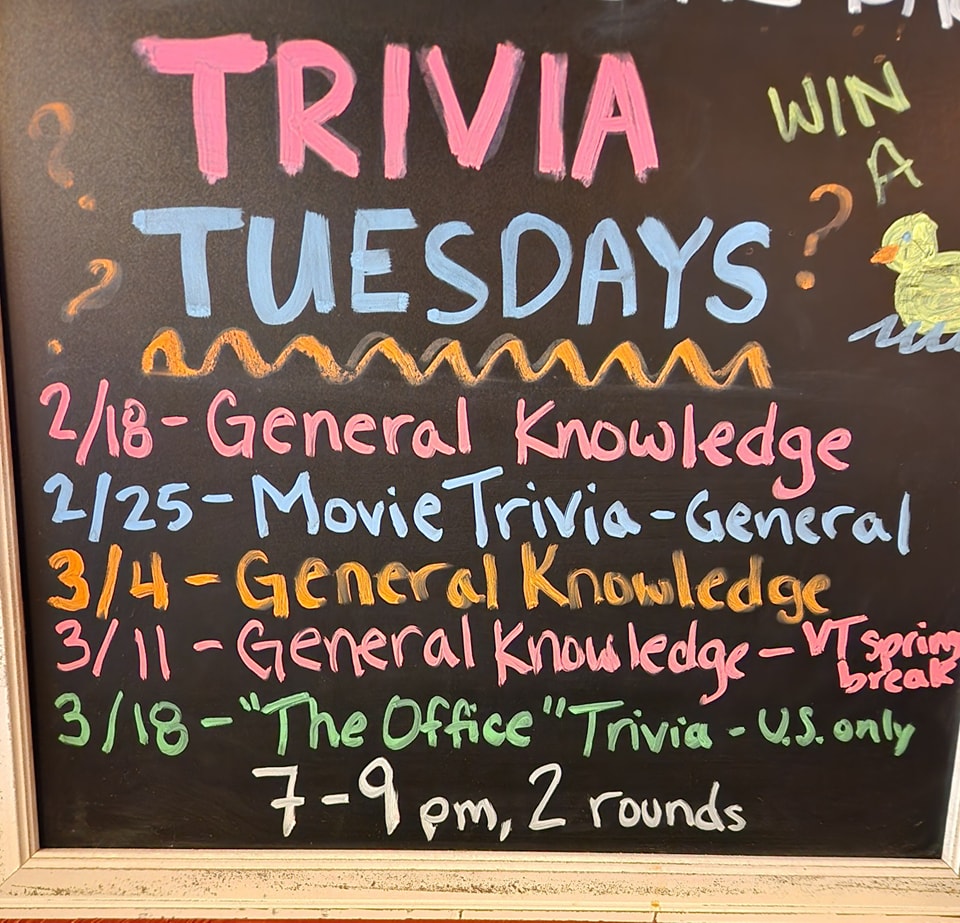 TRIVIA
WIN
A
?
TUESDAYS
?
?
2/18 - General Knowledge
2/25 - Movie Trivia - General
3/4 - General Knowledge
3/11 - General Knowledge - VT spring
break
3/18 - "The Office" Trivia - U.S. only
7-9 pm, 2 rounds